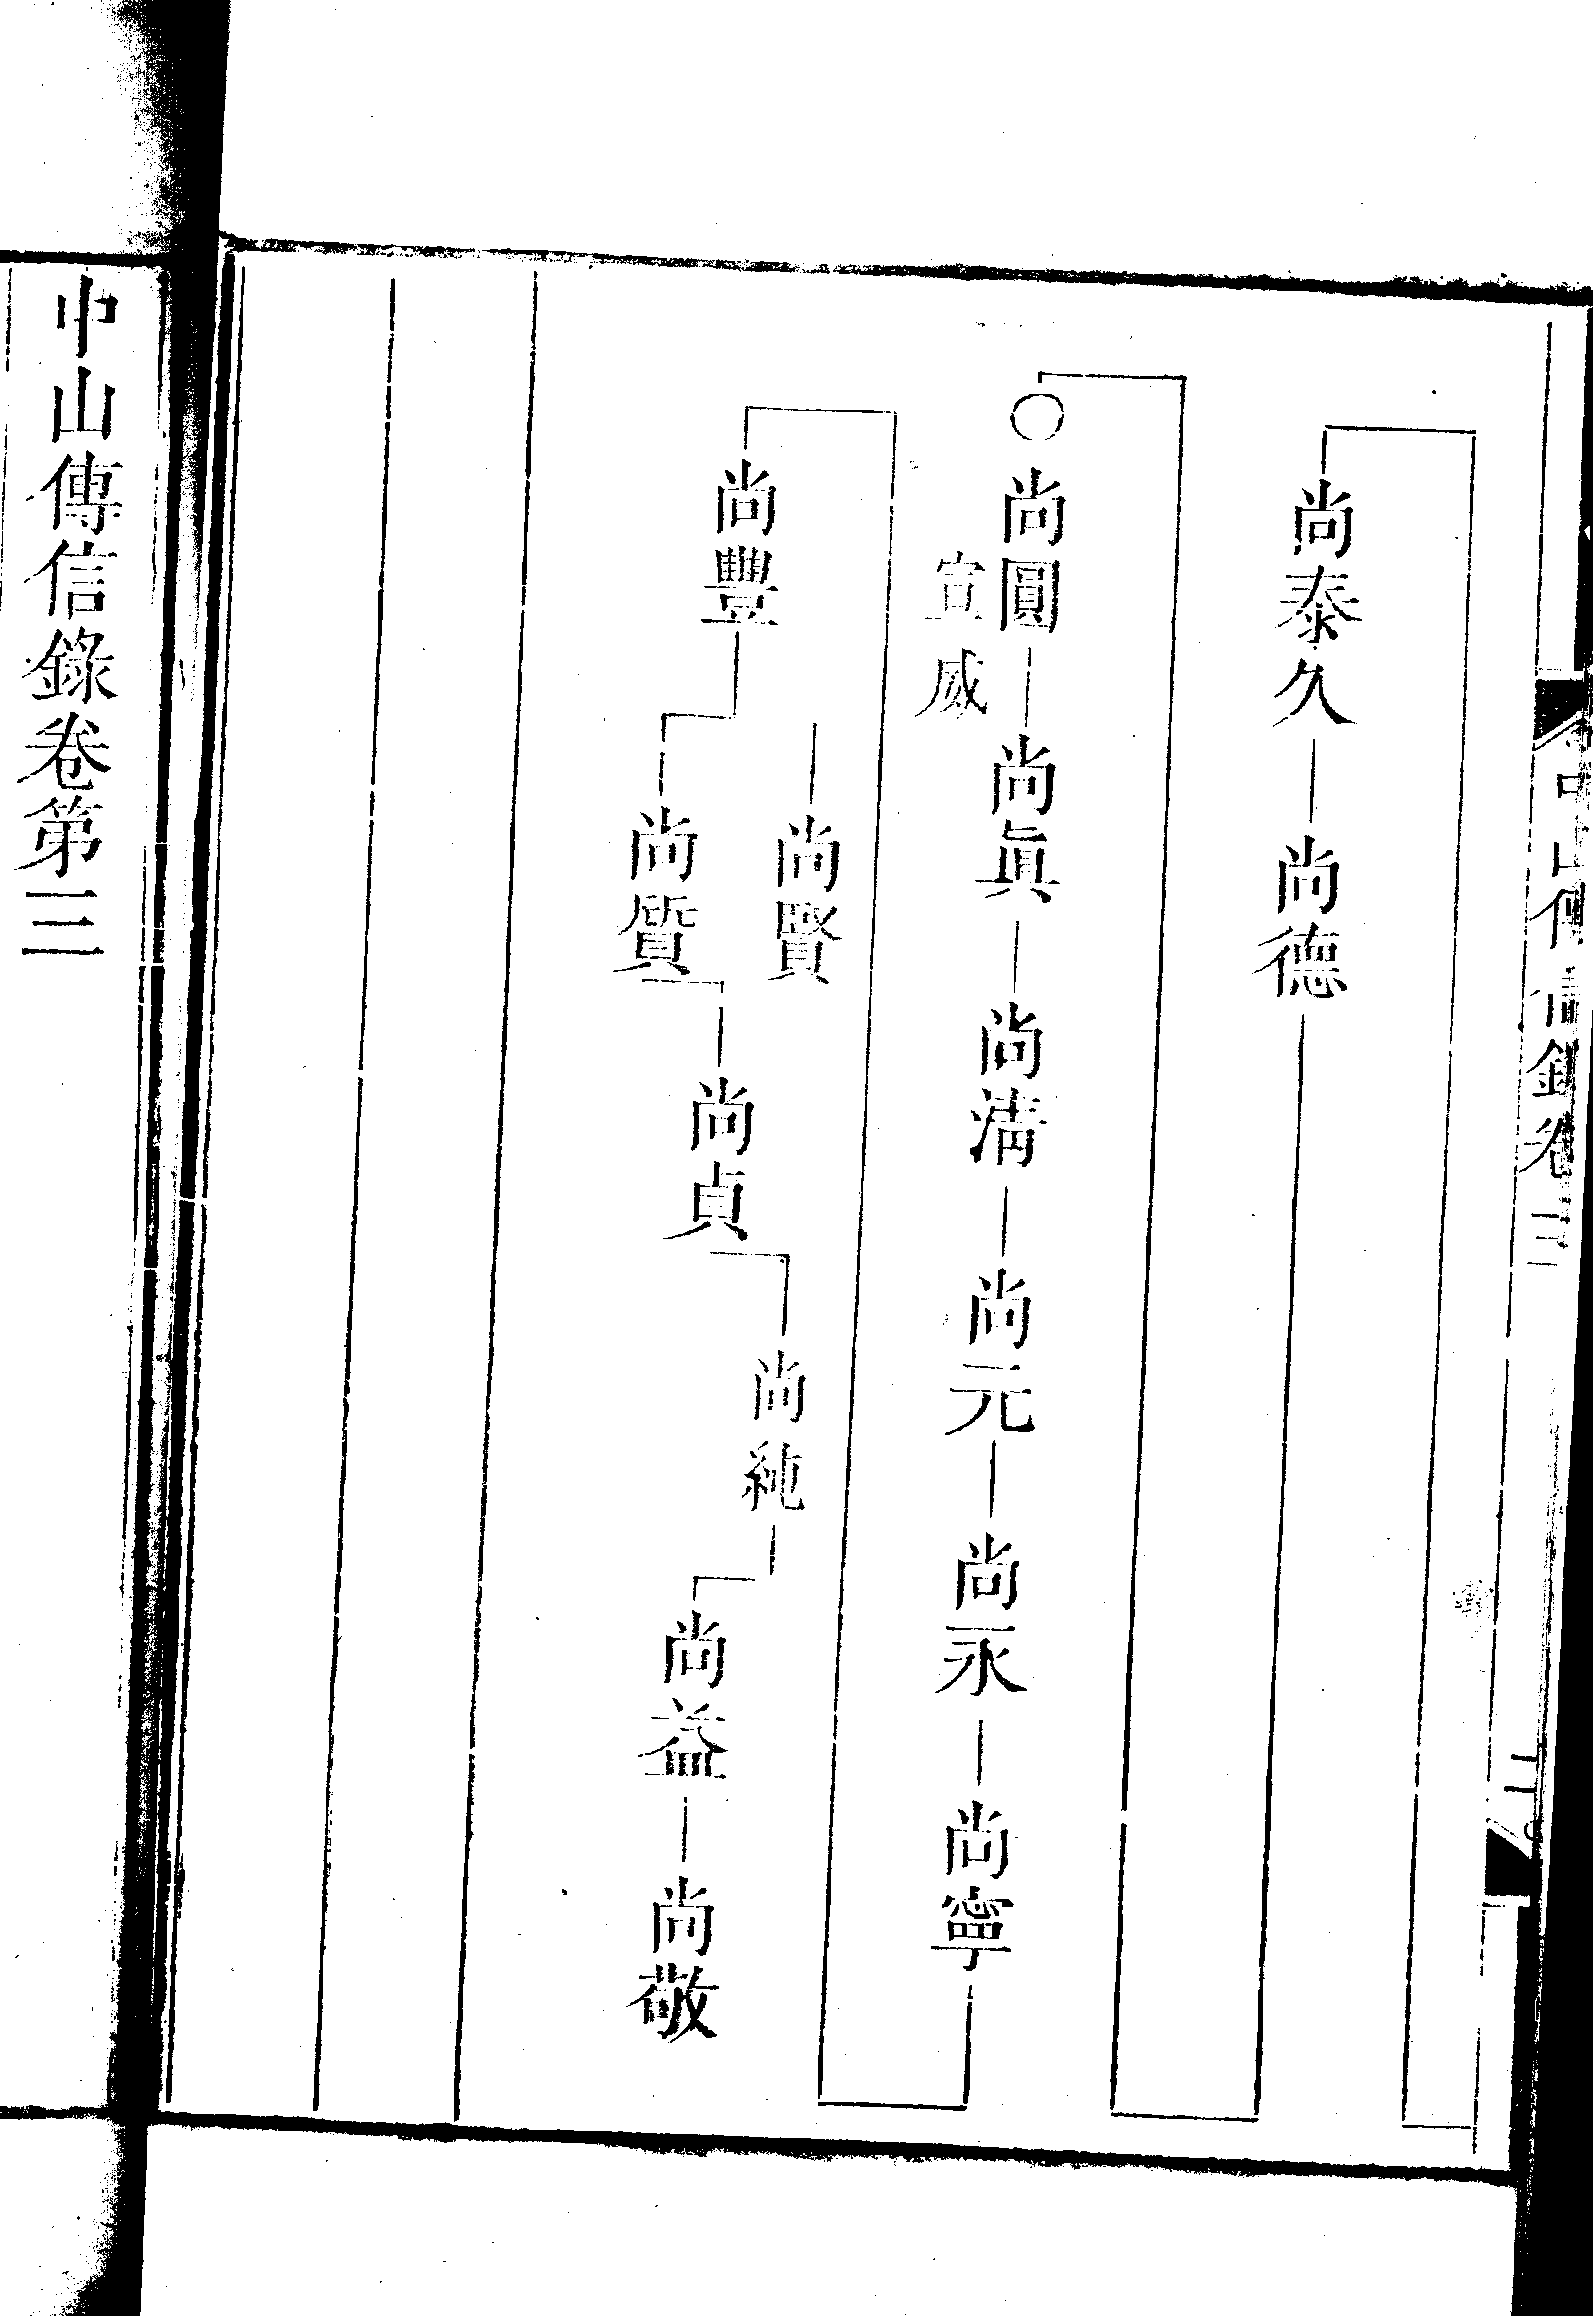 中山傳信錄卷三
尚泰久 尚德
〇尚圓 尚眞 尚淸 尚元 尚永 尚寧
宣威
尚豐 尚賢
尚質 尚貞 尚純 尚益 尚敬
中山傳信錄卷第三